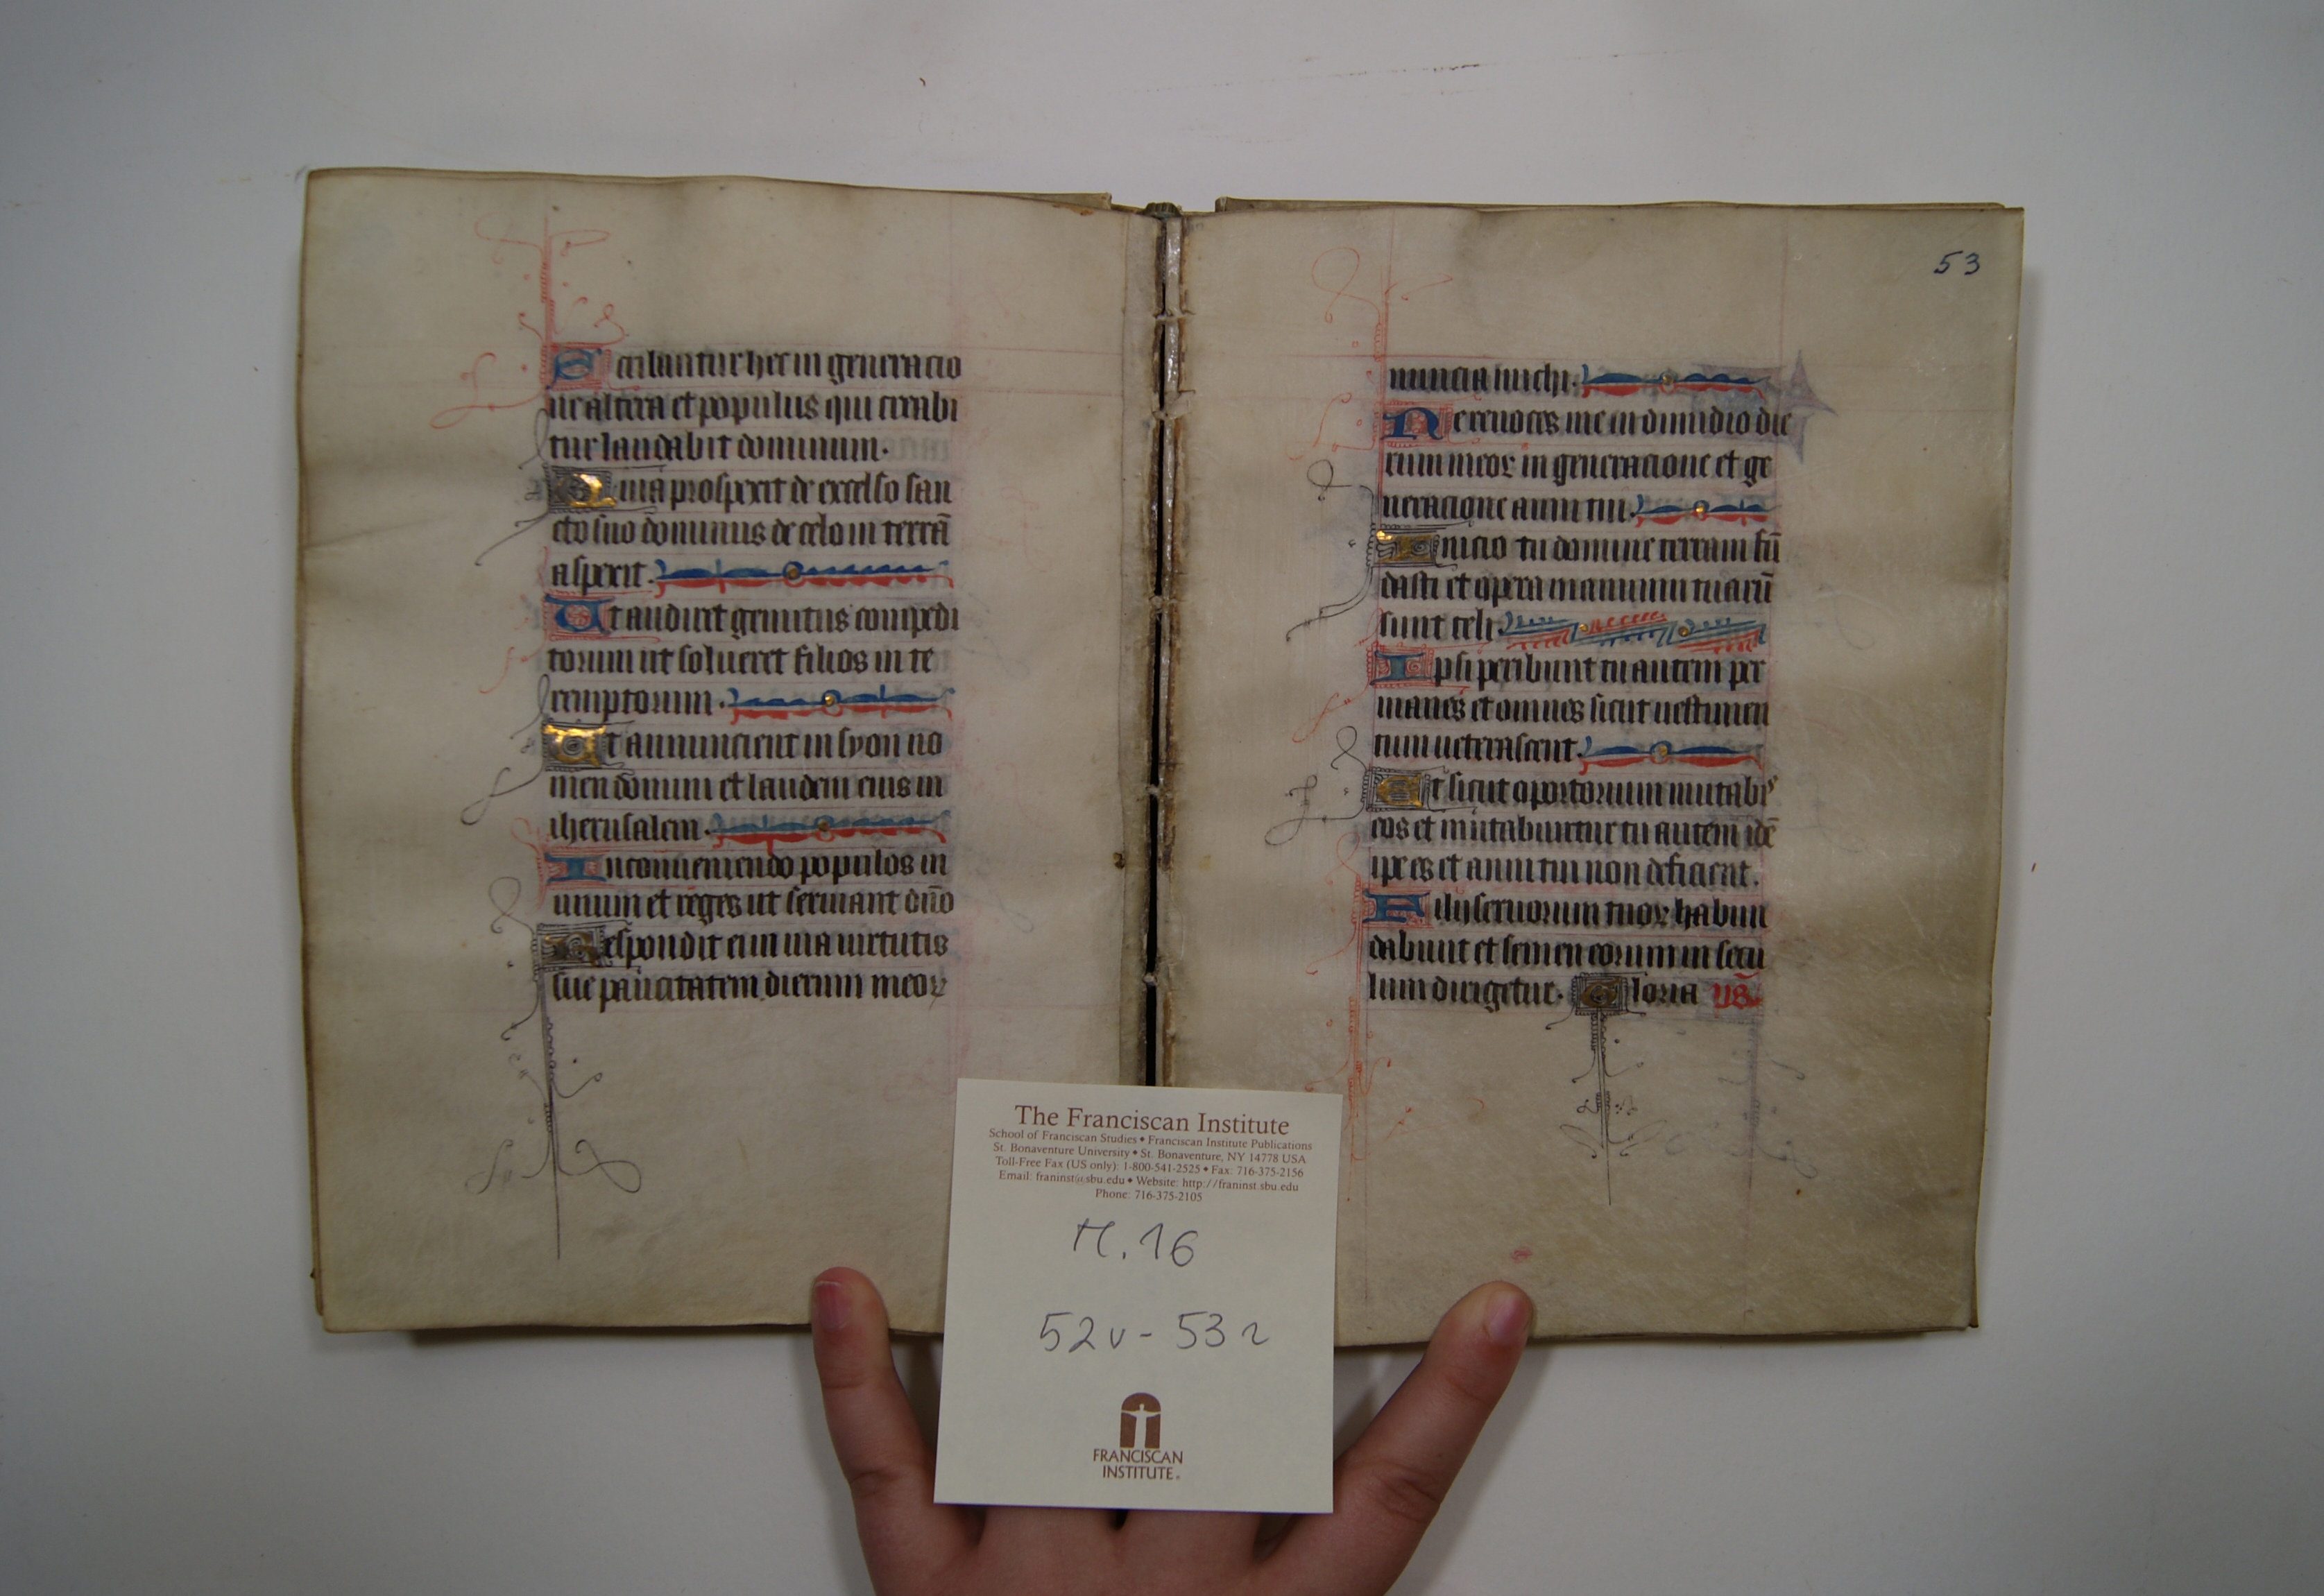 Scribantur hec in generacio
ne altera et populus qui creabi
tur laudabit dominum.
Quia prospexit de excelso san
cto suo dominus de celo in terrā
aspexit.
Ut audiret gemitus compedi
torum ut solueret filios in te
remptorum.
Ut annuncient in syon no
men domini et laudem eius in
iherusalem.
In conueniendo populos in
unum et reges ut seruiant dño
Respondit ei in uia uirtutis
sue paucitatem dierum meoꝝ
53
nuncia michi.
Ne reuoces me in dimidio die
rum meoꝝ in generacione et ge
neracione anni tui.
Inicio tu domine terram fū
dasti et opera manuum tuarū
sunt celi.
Ipsi peribunt tu autem per
manes et omnes sicut uestimen
tum ueterascent.
Et sicut oportorium mutabis
eos et mutabuntur tu autem idē
ipe es et anni tui non deficient.
Filij seruorum tuoꝝ habun
dabunt et semen eorum in secu
lum dirigetur. Gloria
The Franciscan Institute
School of Franciscan Studies • Franciscan Institute Publications
St. Bonaventure University • St. Bonaventure, NY 14778 USA
Toll-Free Fax (US only): 1-800-541-2525 • Fax: 716-375-2156
Email: franinst@sbu.edu • Website: http://franinst.sbu.edu
Phone: 716-375-2105
M.16
52v - 53r
FRANCISCAN
INSTITUTE®